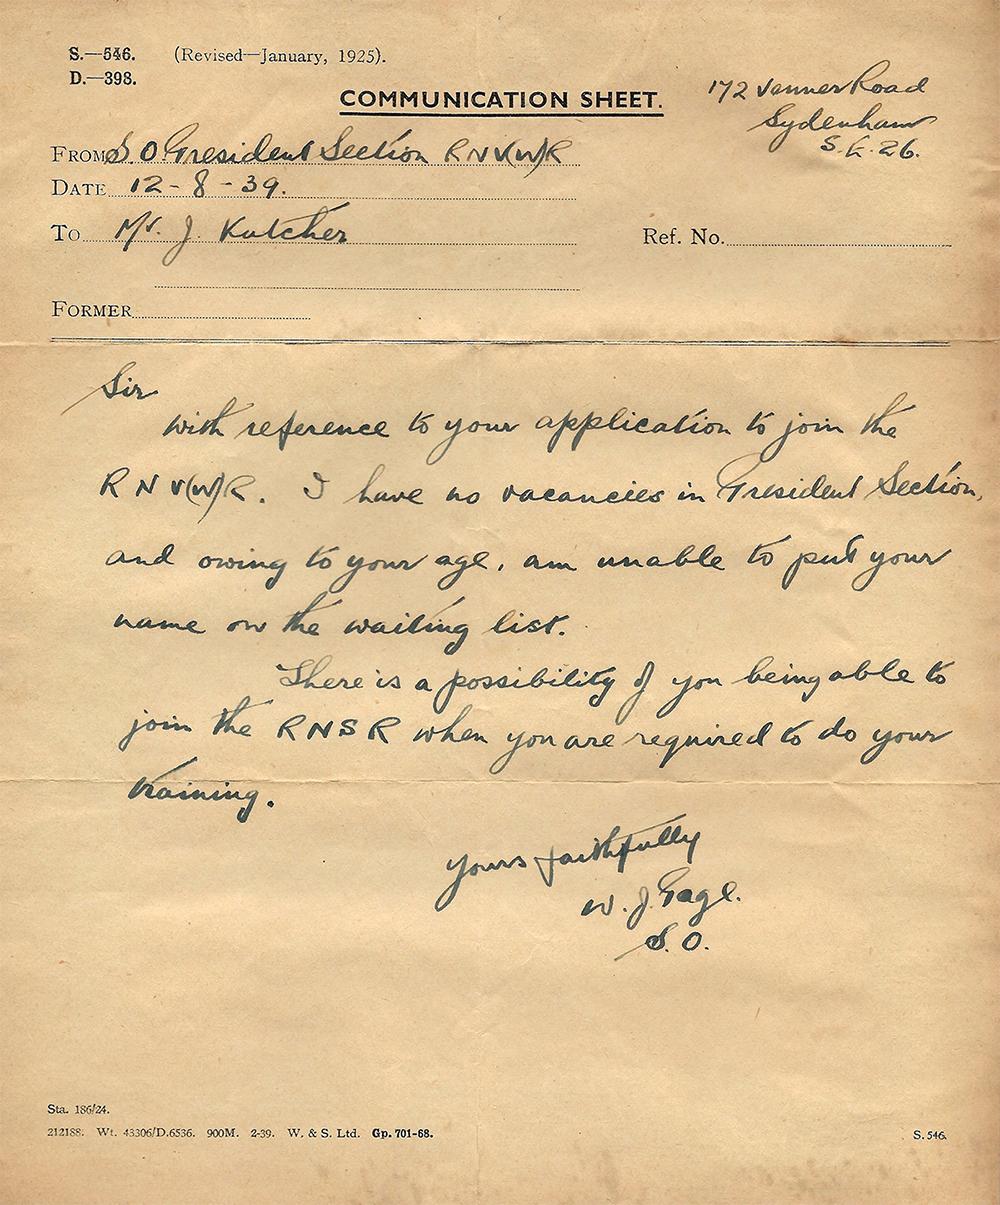 S.—546. (Revised—January, 1925).
D.—398.
COMMUNICATION SHEET.
172 Venner Road
Sydenham
S.E. 26.
FROM S.O. President Section R N V(W)R
DATE 12-8-39.
To Mr. J. Kutcher
Ref. No.
FORMER
Sir
with reference to your application to join the
R N V(W)R. I have no vacancies in President Section,
and owing to your age, am unable to put your
name on the waiting list.
There is a possibility of you being able to
join the RNSR when you are required to do your
training.
yours faithfully
W. J. Gage.
S.O.
Sta. 186/24.
212188. Wt. 43306/D.6536. 900M. 2-39. W. & S. Ltd. Gp. 701-68.
S. 546.